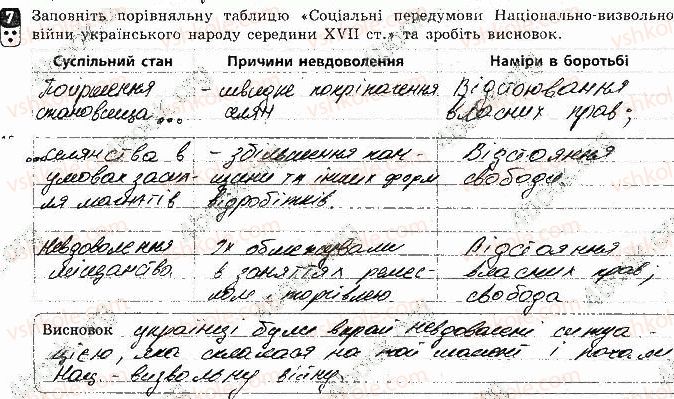 7 Заповніть порівняльну таблицю «Соціальні передумови Національно-визвольної
війни українського народу середини XVII ст.» та зробіть висновок.
Суспільний стан Причини невдоволення Наміри в боротьбі
Погіршення - швидке покріпачення Відстоювання
становища... селян власних прав;
...селянства в - збільшення пан- Відстояння
умовах засил- щини та інших форм свободи
ля магнатів відробітків.
Невдоволення Їх обмежували Відстояння
міщанства в заняттях ремес- власних прав,
лом і торгівлею свобода
Висновок українці були вкрай невдоволені ситуа-
цією, яка склалася на той момент і почали
Нац.-визвольну війну